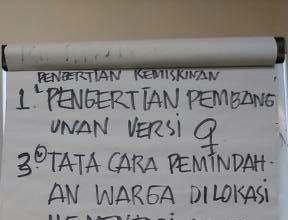 PENGERTIAN KEMISKINAN
1. PENGERTIAN PEMBANG
UNAN VERSI 9
3. TATA CARA PEMINDAH-
AN WARGA DILOKASI